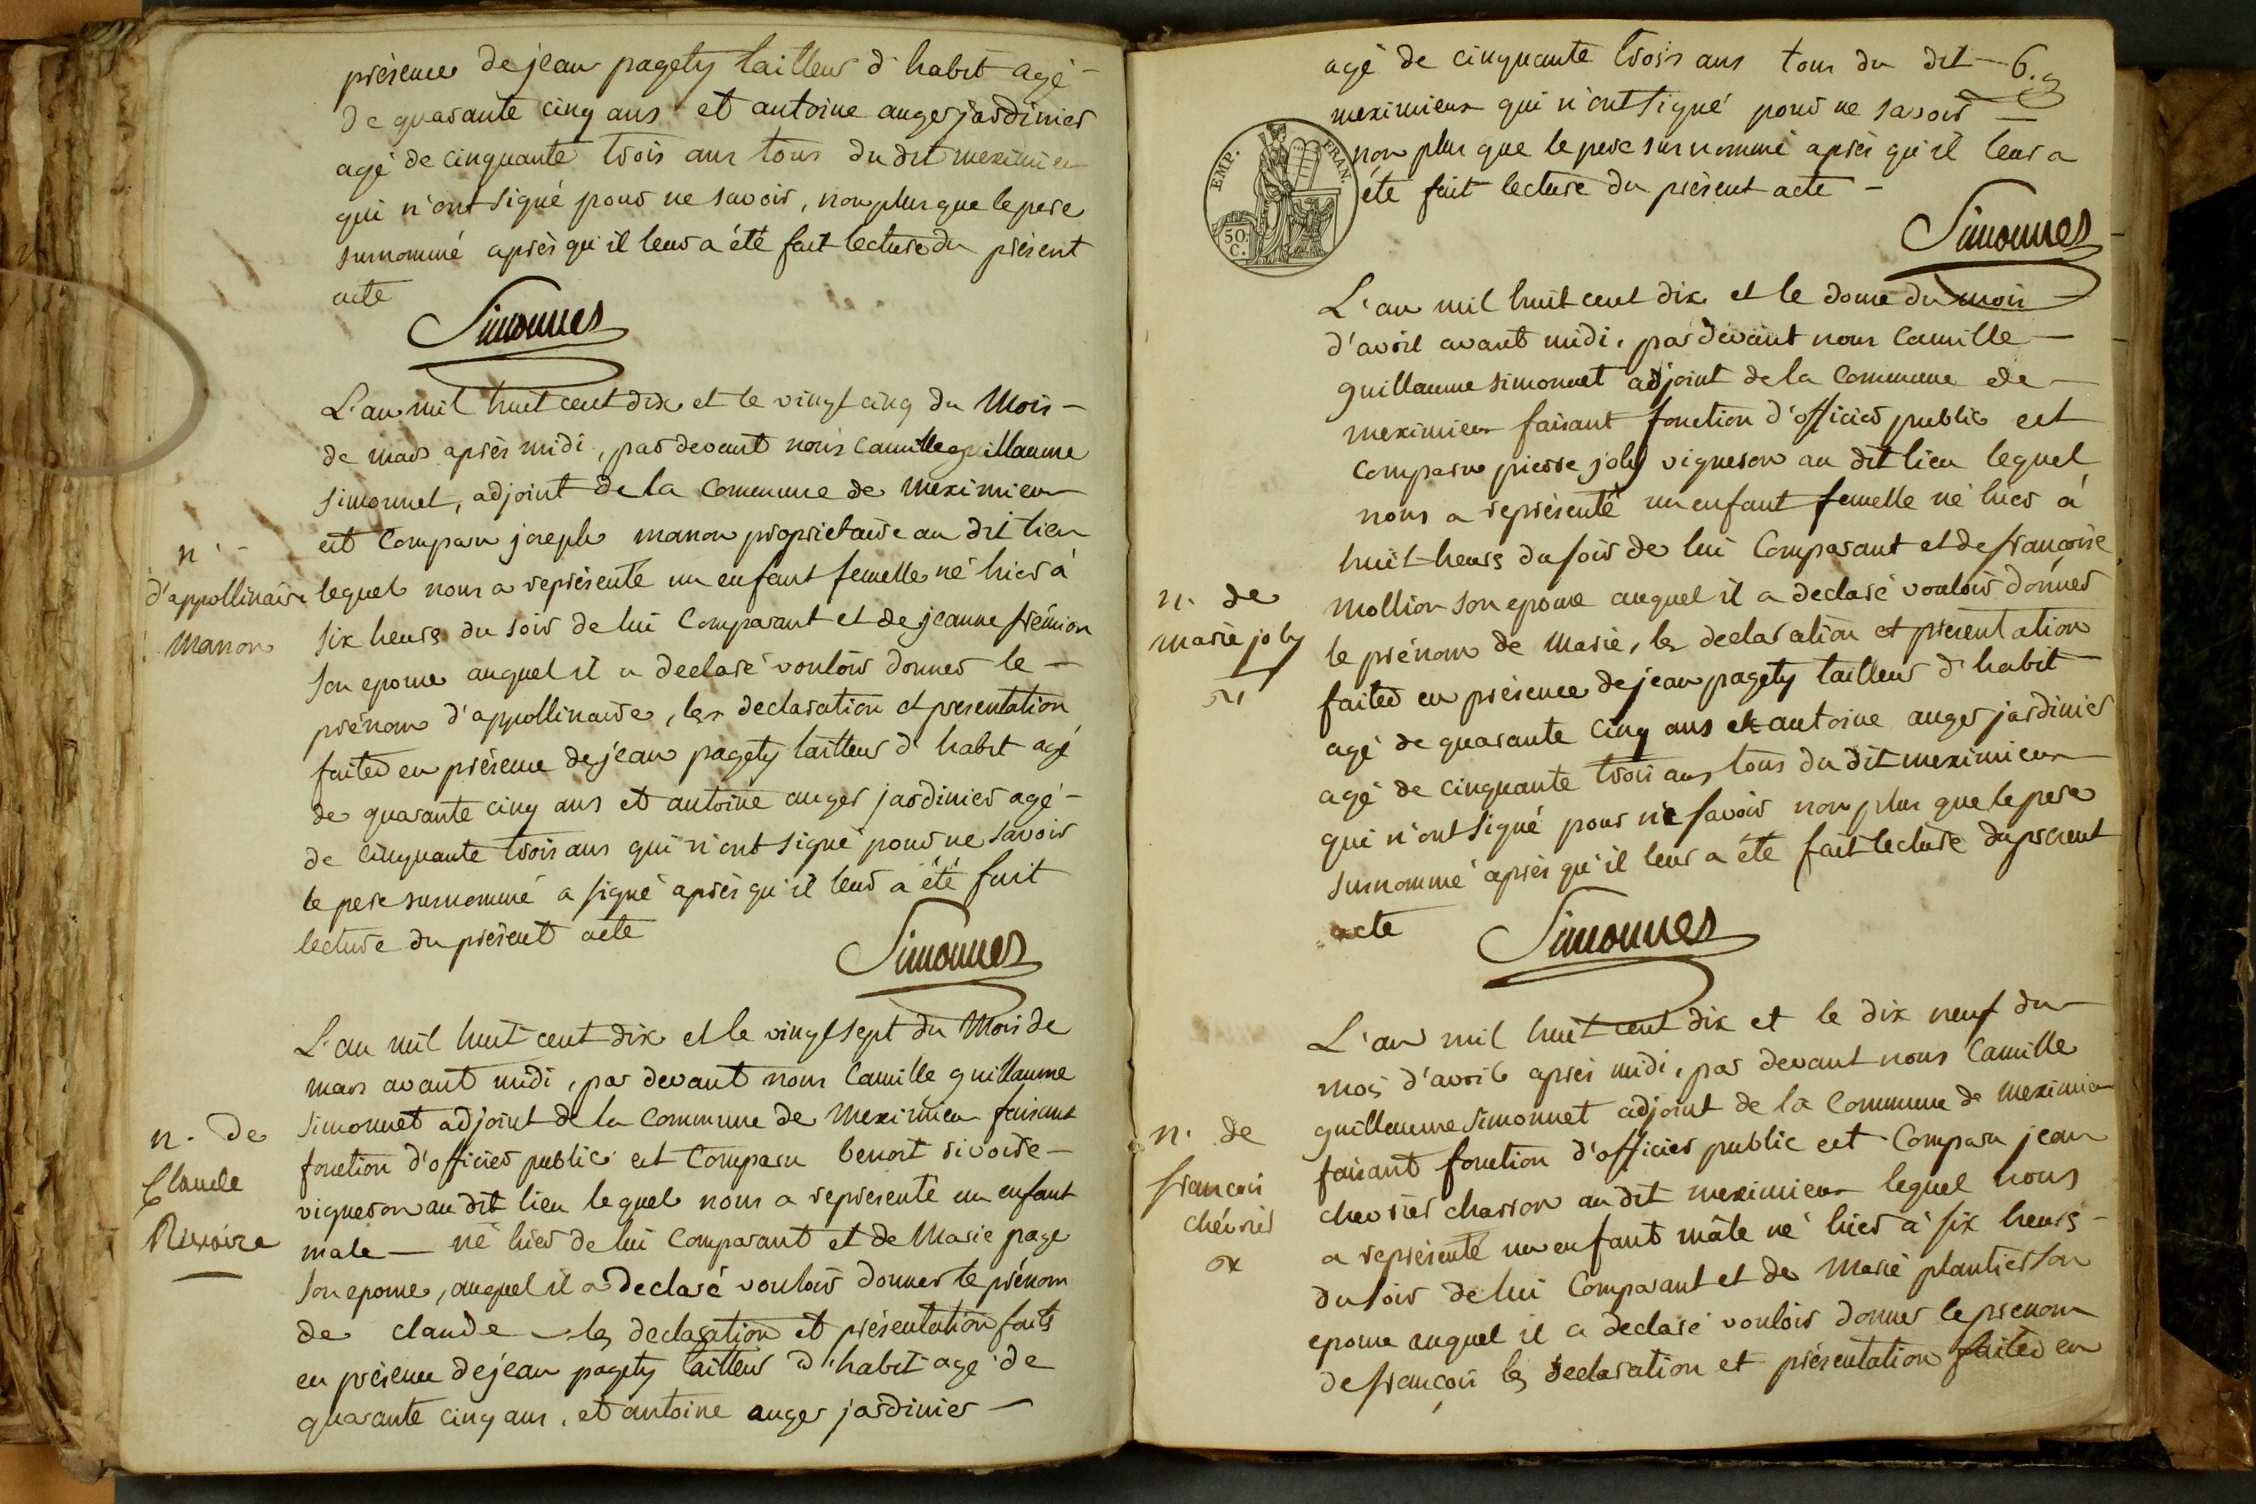 présence de jean pagety tailleur d'habit agé -
de quarante cinq ans et antoine auger jardinier
agé de cinquante trois ans tous du dit meximieu
qui n'ont signé pour ne savoir, non plus que le pere
surnommé après qu'il leur a été fait lecture du présent
acte
Simonnet
L'an mil huit cent dix et le vingt cinq du Mois -
de mars après midi, par devant nous Camille guillaume
simonnet, adjoint de la Commune de meximieux
est Comparu joseph manon proprietaire au dit lieu
n. -
d'appollinaire
Manon
lequel nous a représenté un enfant femelle né hier à
six heures du soir de lui Comparant et de jeanne frémion
son epouse auquel il a declaré vouloir donner le -
prénom d'appollinaire, les declaration et presentation
faites en présence de jean pagety tailleur d'habit agé
de quarante cinq ans et antoine auger jardinier agé -
de cinquante trois ans qui n'ont signé pour ne savoir
le pere surnommé a signé après qu'il leur a été fait
lecture du présent acte
Simonnet
L'an mil huit cent dix et le vingt sept du Mois de
mars avant midi, par devant nous Camille guillaume
simonnet adjoint de la Commune de Meximieu faisant
n. de
Claude
Rivoire
fonction d'officier public est Comparu benoit rivoire -
vigneron au dit lieu lequel nous a representé un enfant
male - né hier de lui Comparant et de Marie page
son epouse, auquel il a declaré vouloir donner le prénom
de claude - les declaration et présentation faits
en présence de jean pagety tailleur d'habit agé de
quarante cinq ans, et antoine auger jardinier -
agé de cinquante trois ans tous du dit - 6.
meximieux qui n'ont signé pour ne savoir -
non plus que le pere surnommé après qu'il leur a
été fait lecture du présent acte -
EMP. FRAN.
50 C.
Simonnet
L'an mil huit cent dix et le douze du mois
d'avril avant midi, par devant nous Camille -
guillaume simonnet adjoint de la Commune de -
meximieux faisant fonction d'officier public est
Comparu pierre joly vigneron au dit lieu lequel
nous a représenté un enfant femelle né hier à
huit heures du soir de lui Comparant et de françoise
n. de
marie joly
mollion son epouse auquel il a declaré vouloir donner
le prénom de Marie, les declaration et presentation
faites en présence de jean pagety tailleur d'habit
agé de quarante cinq ans et antoine auger jardinier
agé de cinquante trois ans tous du dit meximieux
qui n'ont signé pour ne savoir non plus que le pere
surnommé après qu'il leur a été fait lecture du présent
acte
Simonnet
L'an mil huit cent dix et le dix neuf du -
mois d'avril après midi, par devant nous Camille
guillaume simonnet adjoint de la Commune de meximieu
n. de
françois
chévrier
faisant fonction d'officier public est Comparu jean
chevrier charron au dit meximieux lequel nous
a représenté un enfant mâle né hier à six heures -
du soir de lui Comparant et de Marie plantier son
epouse auquel il a declaré vouloir donner le prenom
de françois les declaration et présentation faites en